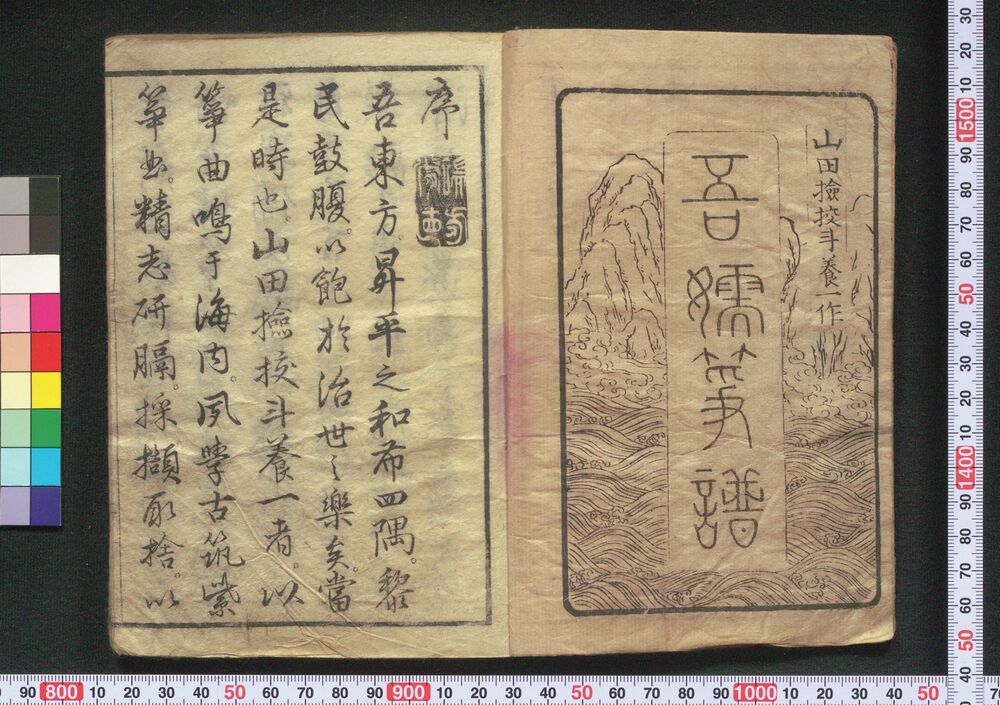 山田撿挍斗養一作
吾嬬箏譜
序
吾東方昇平之和布四隅。黎
民鼓腹。以飽於治世之樂矣。當
是時也。山田撿挍斗養一者。以
箏曲鳴于海内。夙學古筑紫
箏曲。精志研膈。採擷取捨。以
30
20
10
1500
90
80
70
60
50
40
30
20
10
1400
90
80
70
60
50
40
90 800 10 20 30 40 50 60 70 80 90 900 10 20 30 40 50 60 70 80 90 1000 10 20 30 40 50